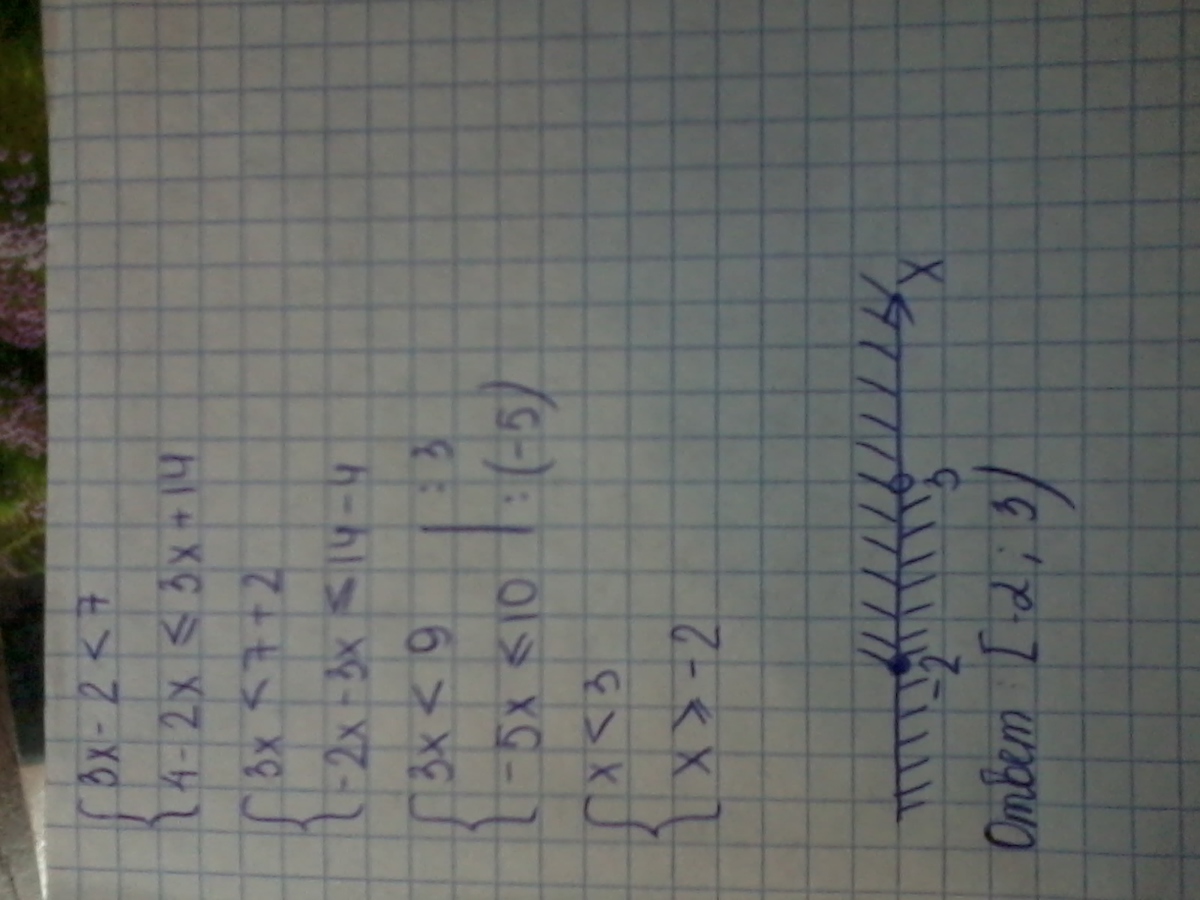 { 3x - 2 < 7
4 - 2x ≤ 3x + 14
{ 3x < 7 + 2
-2x - 3x ≤ 14 - 4
{ 3x < 9 | : 3
-5x ≤ 10 | : (-5)
{ x < 3
x ≥ -2
-2 3 x
Ответ: [-2; 3)